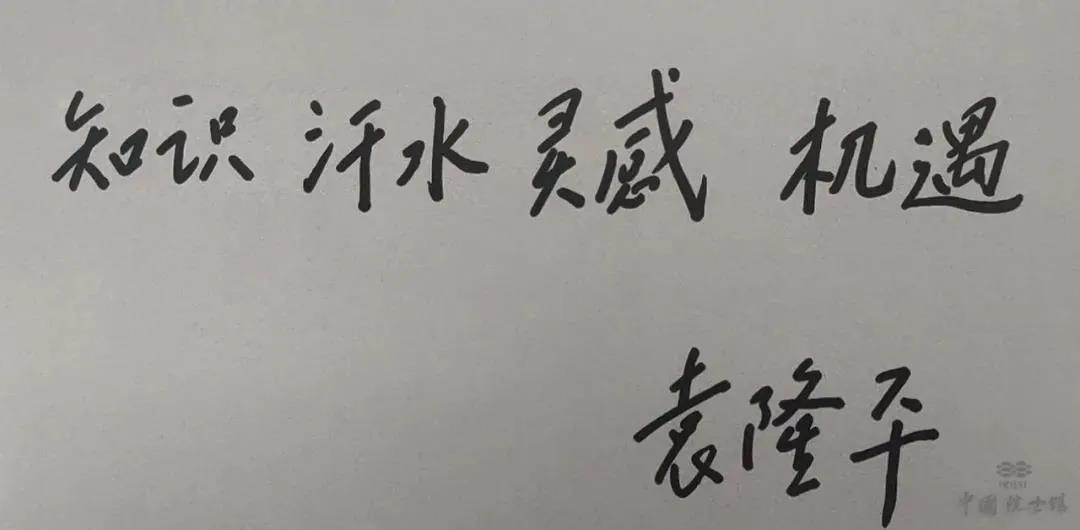 知识 汗水 灵感 机遇
袁隆平
中國院士馆